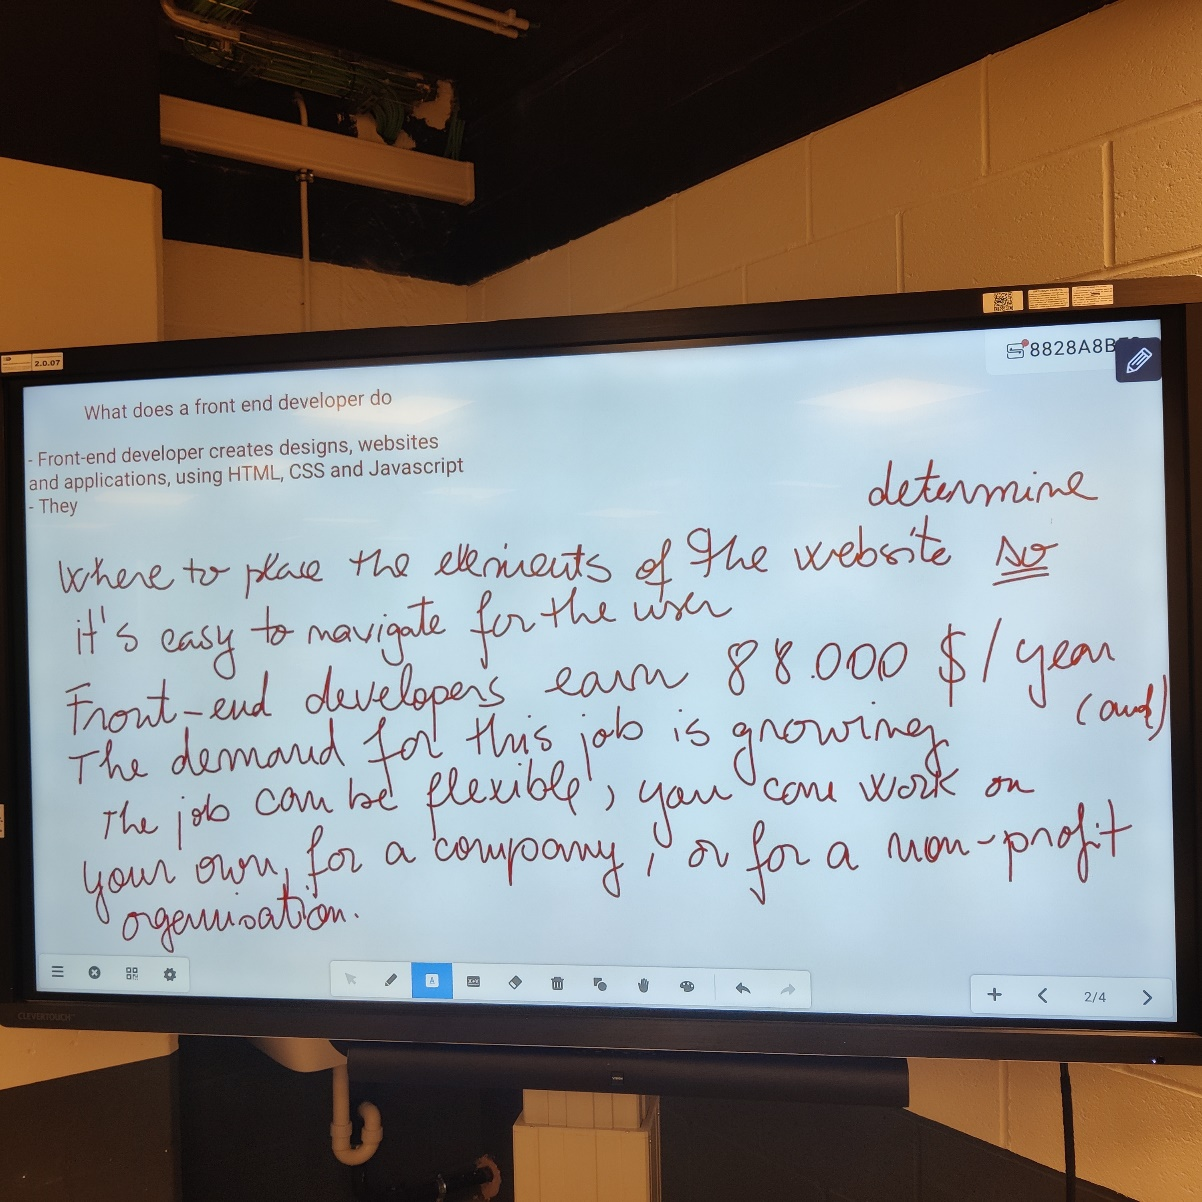 2.0.07
8828A8B
What does a front end developer do
- Front-end developer creates designs, websites
and applications, using HTML, CSS and Javascript
- They
determine
Where to place the elements of the website so
it's easy to navigate for the user
Front-end developers earn 88.000 $/year
(and)
The demand for this job is growing
The job can be flexible, you can work on
your own, for a company, or for a non-profit
organisation.
2/4
CLEVERTOUCH